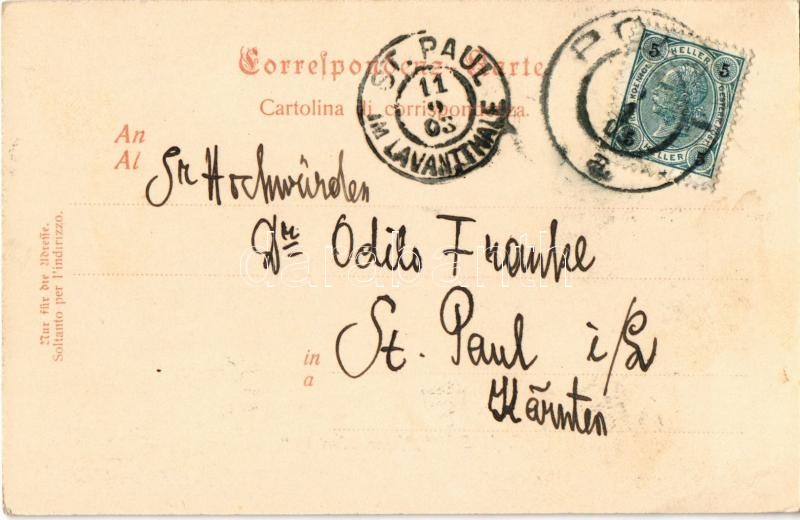 Correspondenz-Karte
Cartolina di corrispondenza.
ST. PAUL
11
9
03
IM LAVANTTHALE
PO
03
a
5 HELLER 5
5 HELLER 5
An
Al
Sr Hochwürden
Dr Odilo Franke
St. Paul i/L
Kärnten
in
a
Nur für die Adresse.
Soltanto per l'indirizzo.
darabanth